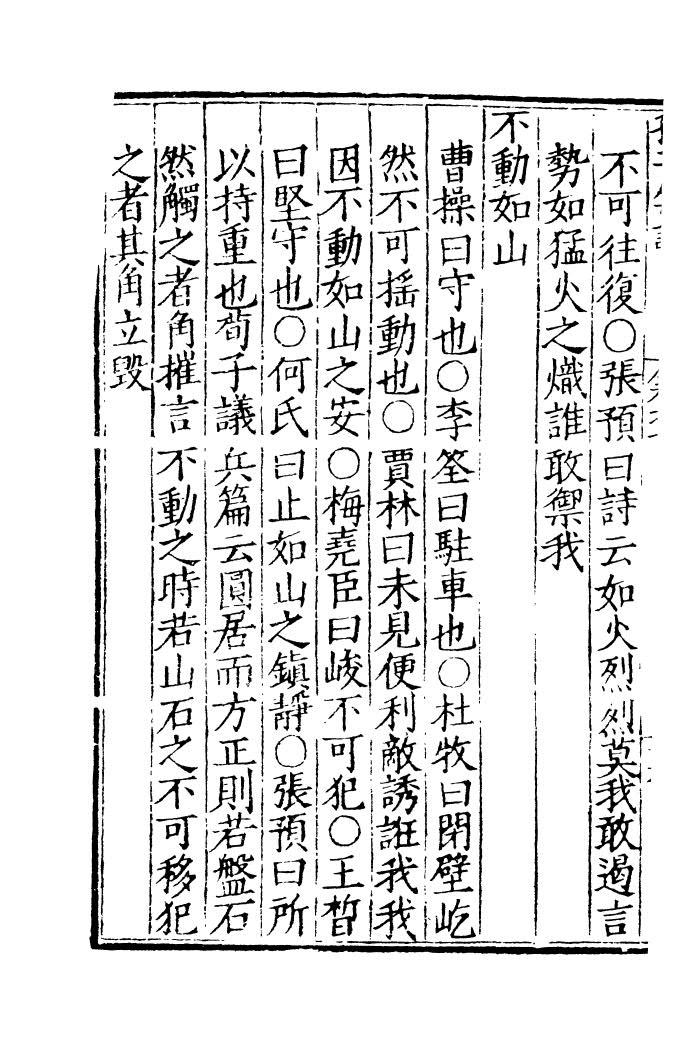 不可往復○張預曰詩云如火烈烈莫我敢遏言
勢如猛火之熾誰敢禦我
不動如山
曹操曰守也○李筌曰駐車也○杜牧曰閉壁屹
然不可搖動也○賈林曰未見便利敵誘誑我我
因不動如山之安○梅堯臣曰峻不可犯○王晳
曰堅守也○何氏曰止如山之鎮靜○張預曰所
以持重也荀子議兵篇云圓居而方正則若盤石
然觸之者角摧言不動之時若山石之不可移犯
之者其角立毀